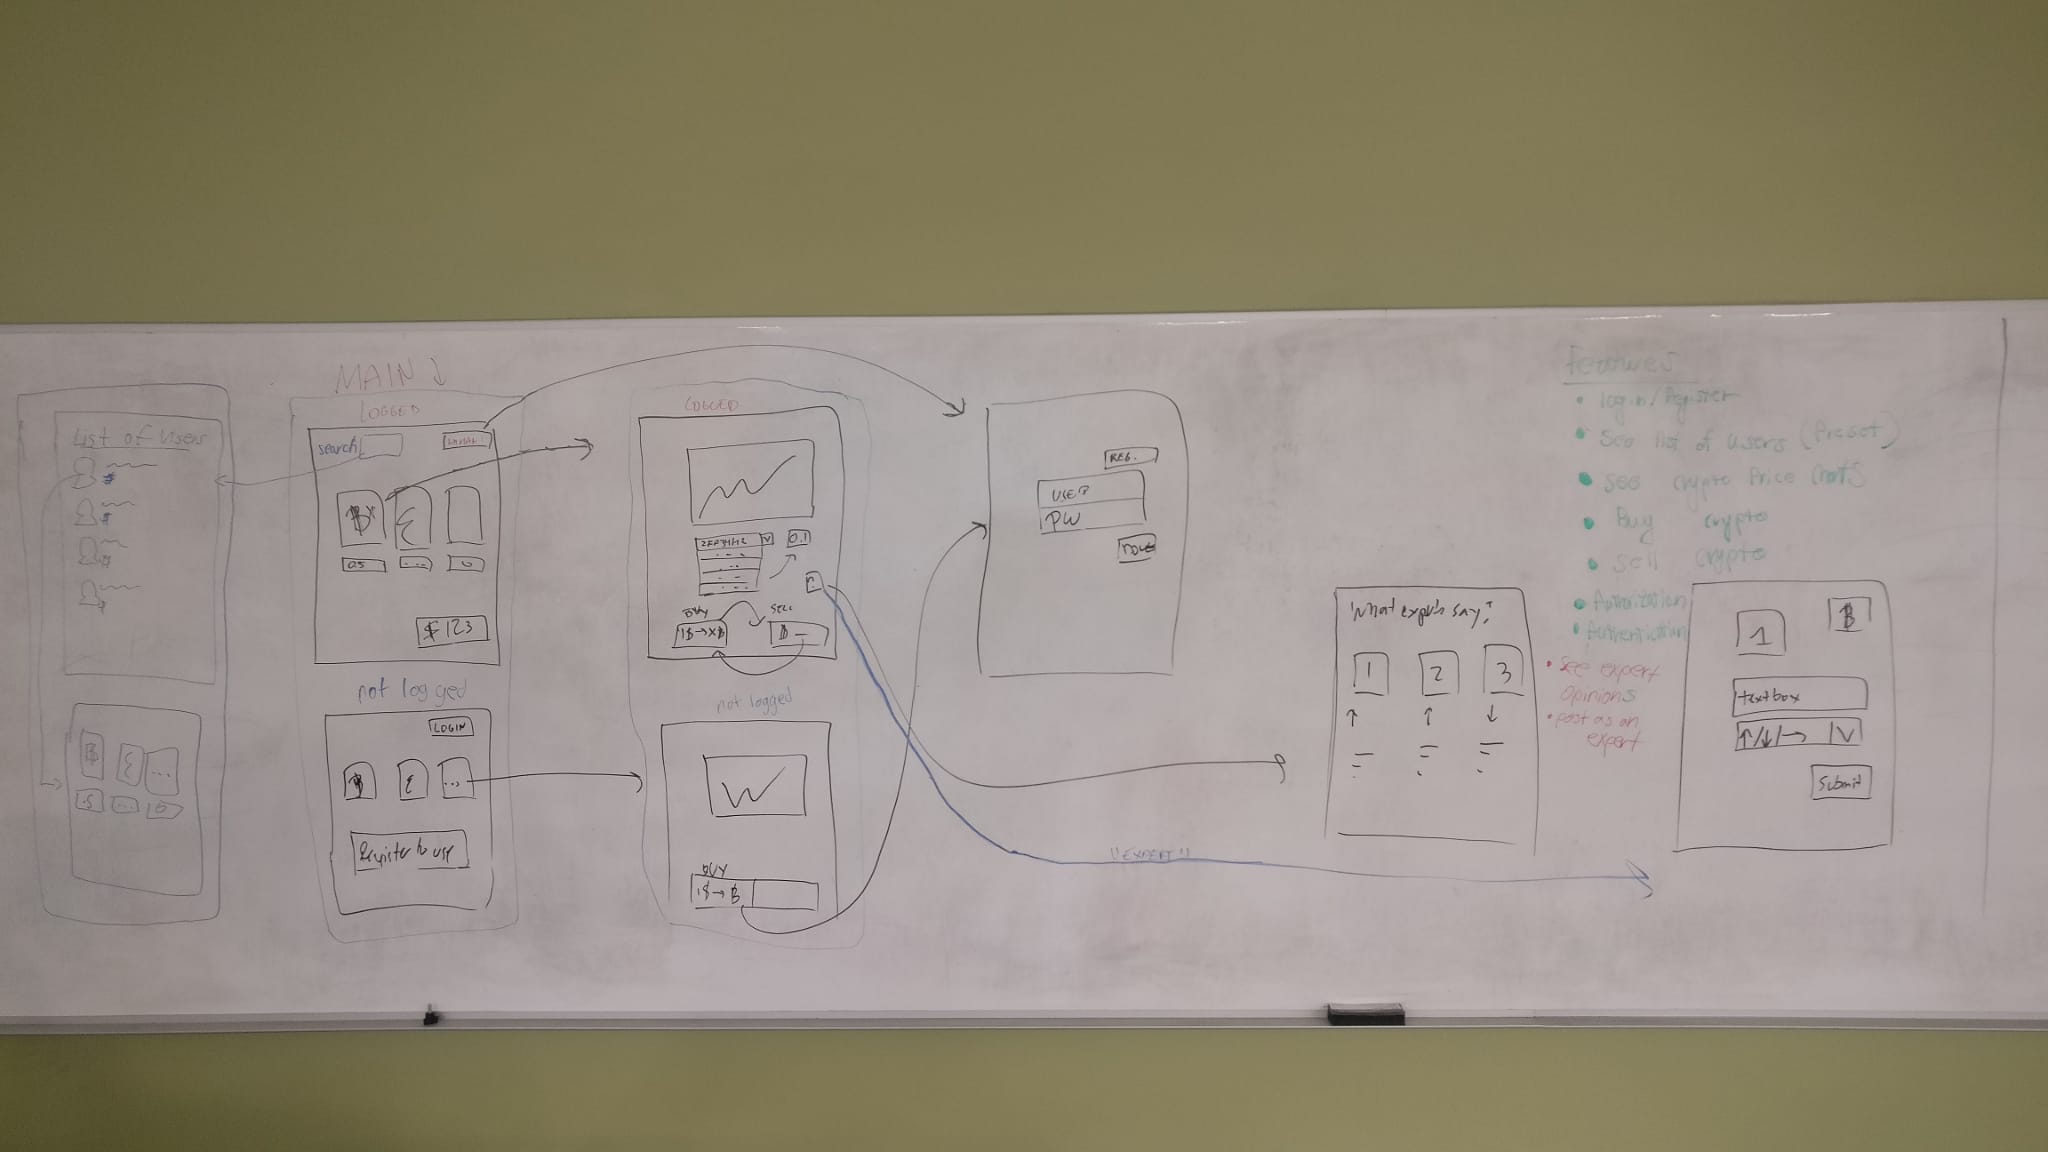 MAIN
LOGGED
List of Users
$
$
$
$
search
฿
Ɛ
0.5
...
0
$ 123
not logged
LOGIN
฿
Ɛ
...
Register to use
฿
Ɛ
...
.5
...
LOGGED
0.1
BUY
SELL
1$→X฿
฿ –
not logged
BUY
1$→฿
REG.
USER
PW
"EXPERT"
What experts say?
1
2
3
↑
↑
↓
Features
• login/Register
• See list of users (Preset)
• see crypto Price charts
• Buy crypto
• Sell crypto
• Authorization
• Authentication
• See expert
opinions
• post as an
expert
1
฿
textbox
↑/↓/→ V
Submit